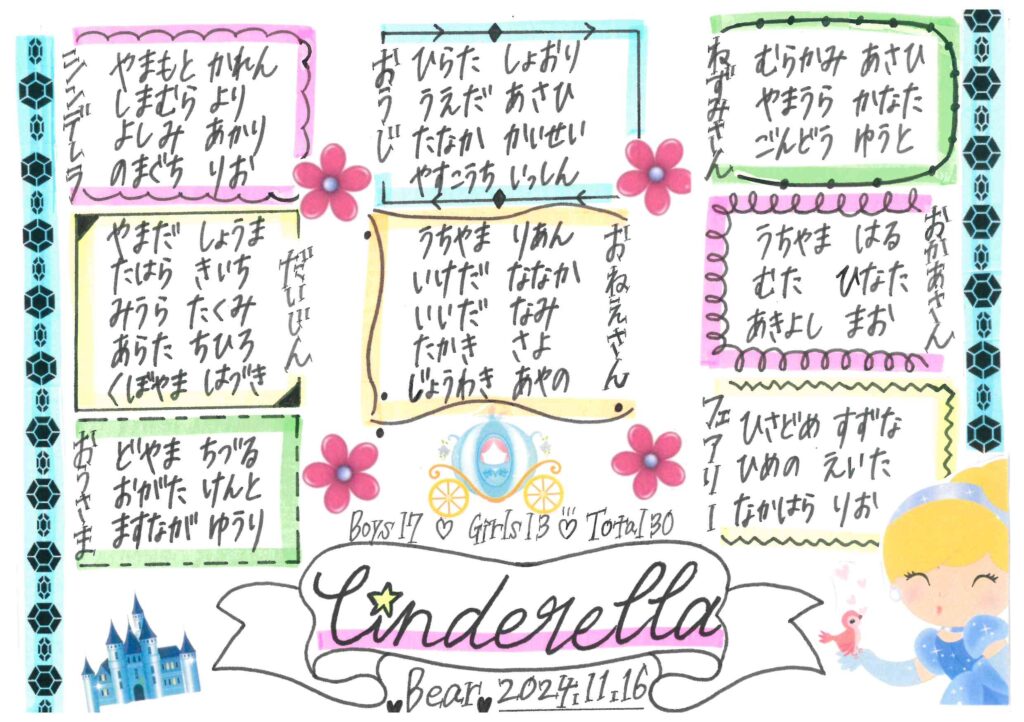 シンデレラ
やまもと かれん
しまむら より
よしみ あかり
のまぐち りお
おうじ
ひらた しょおり
うえだ あさひ
たなか かいせい
やすこうち いっしん
ねずみさん
むらかみ あさひ
やまうら かなた
ごんどう ゆうと
だいじん
やまだ しょうま
たはら きいち
みうら たくみ
あらた ちひろ
くぼやま はづき
おねえさん
うちやま りあん
いけだ ななか
いいだ なみ
たかき さよ
じょうわき あやの
おかあさん
うちやま はる
むた ひなた
あきよし まお
おうさま
どやま ちづる
おがた けんと
ますなが ゆうり
フェアリー
ひさどめ すずな
ひめの えいた
なかはら りお
Boys17 ♡ Girls13 ♡ Total30
Cinderella
Bear 2024.11.16